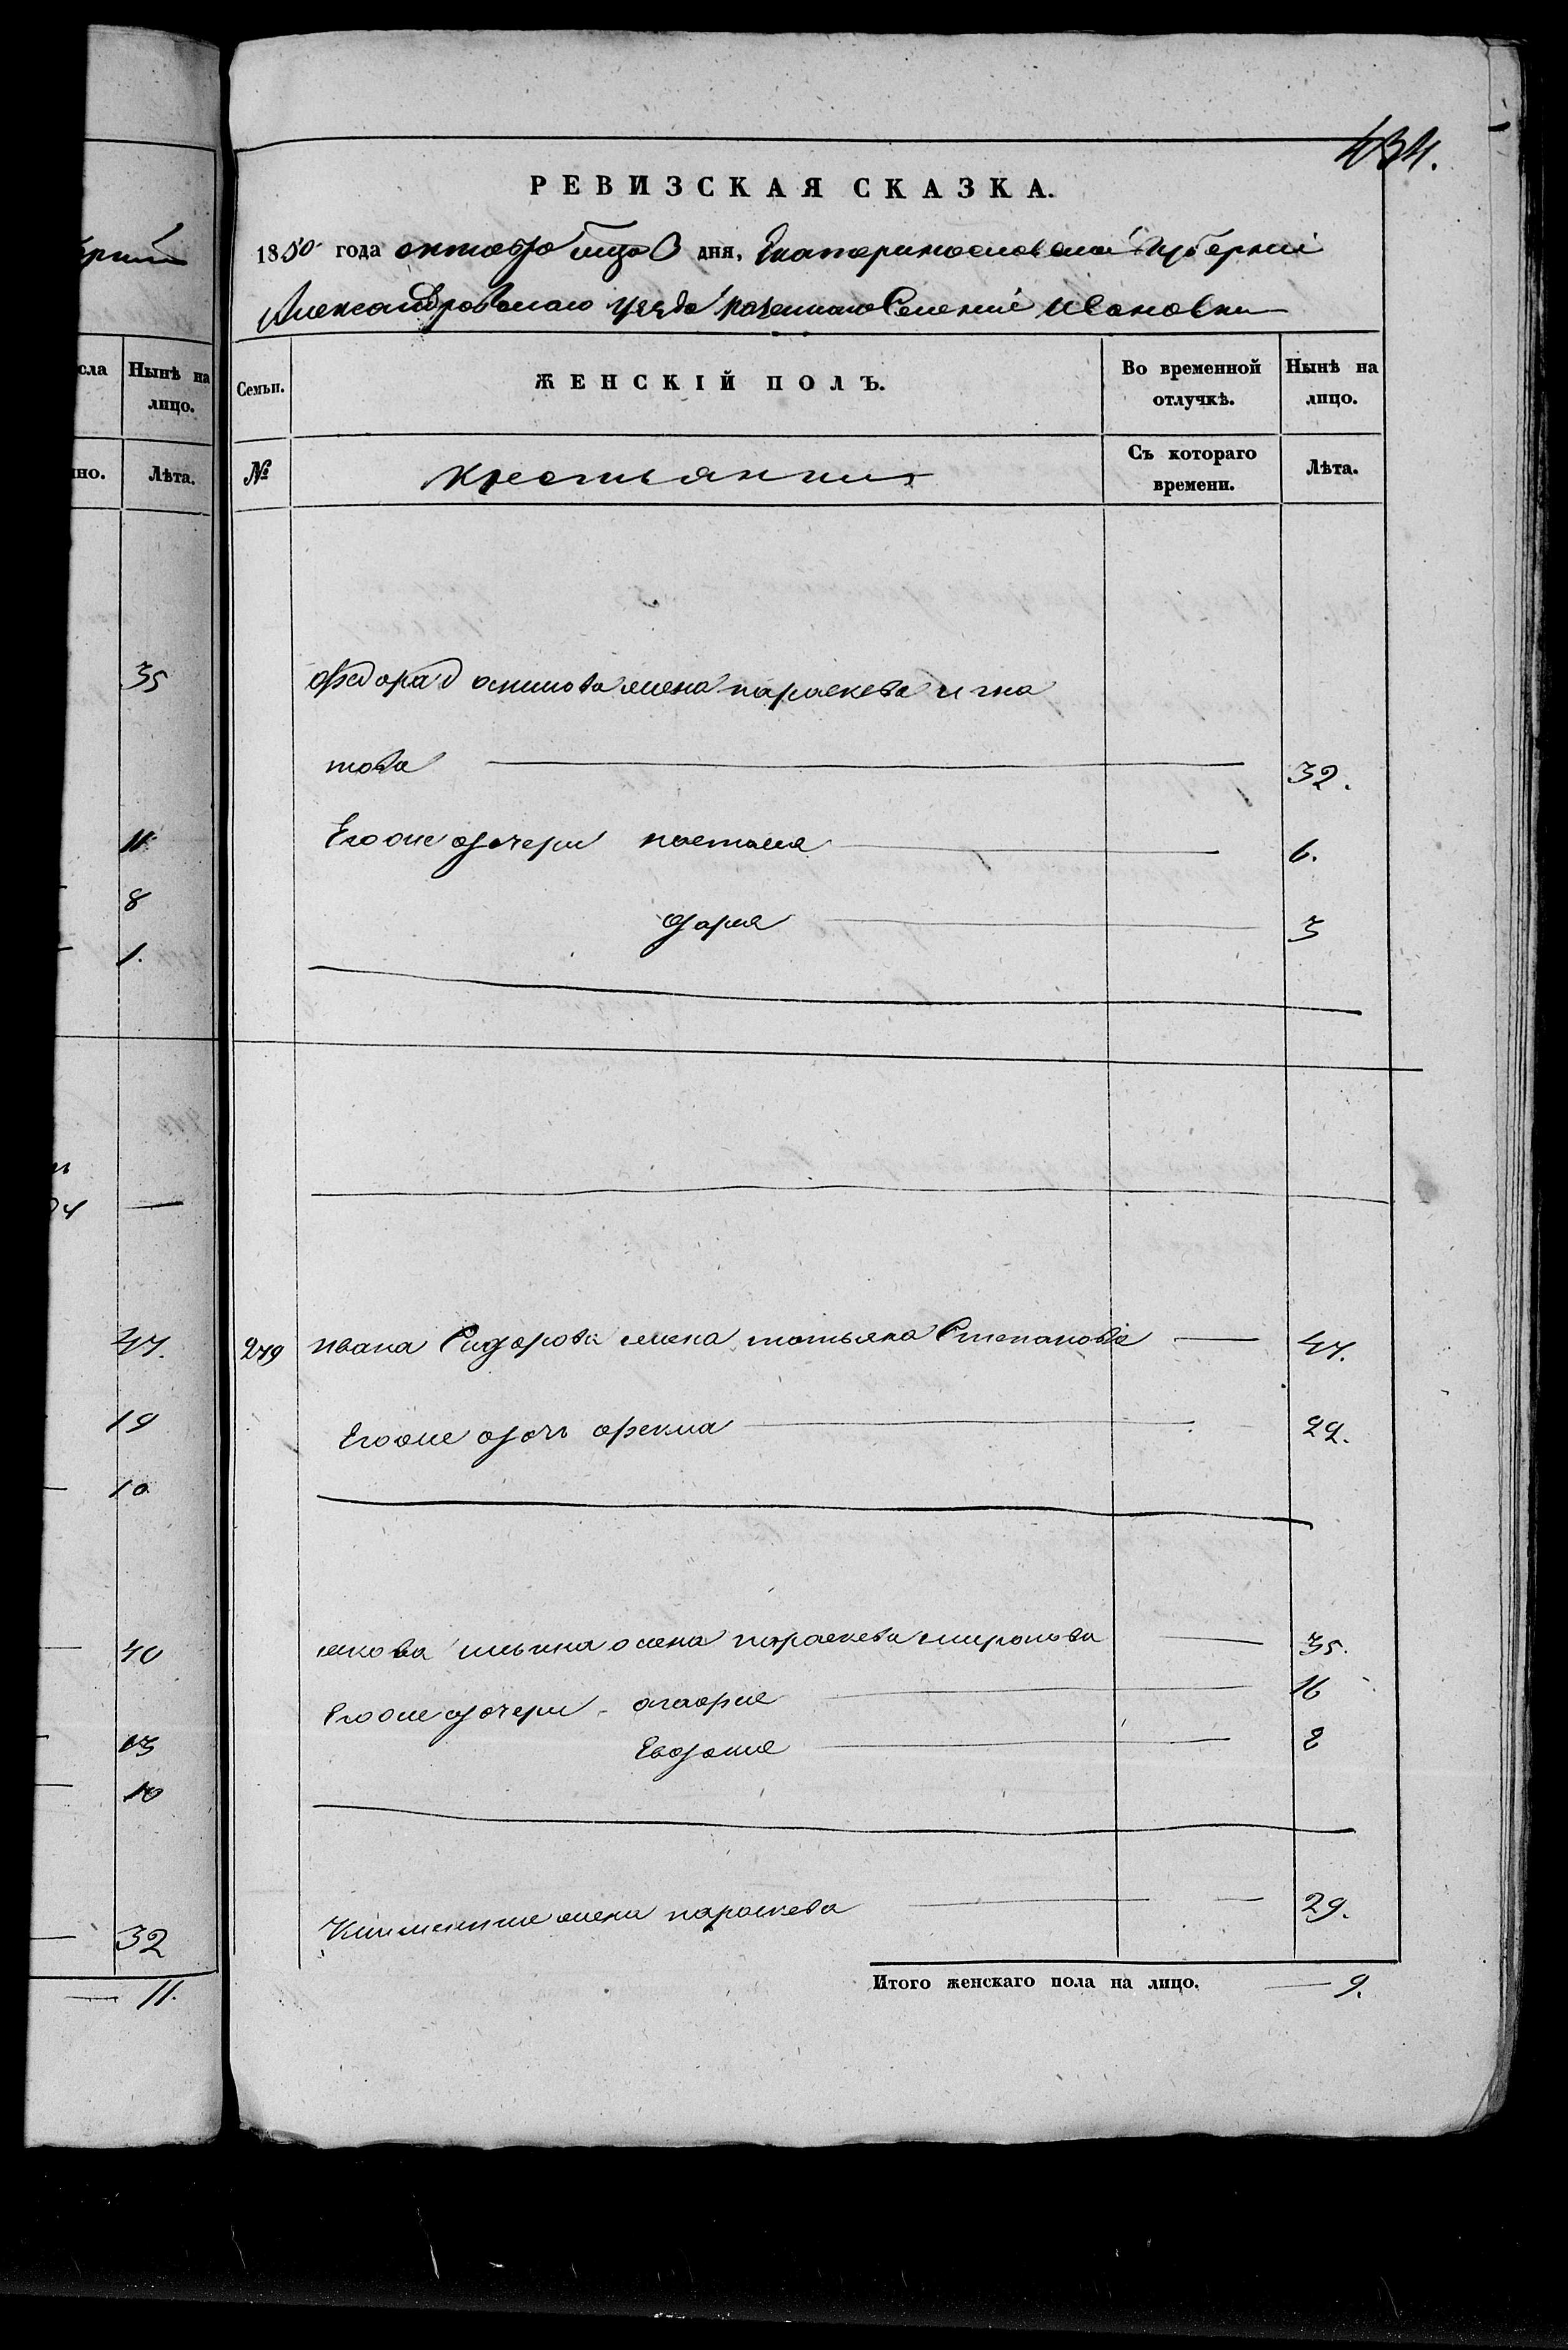 434.
РЕВИЗСКАЯ СКАЗКА.
1850 года октября дня, Екатеринославской Губернии
Александровского уезда казенного Селения Ивановки
сла
Нынѣ на лицо.
Семьи.
ЖЕНСКІЙ ПОЛЪ.
Во временной отлучкѣ.
Нынѣ на лицо.
но.
Лѣта.
№
крестьянки
Съ котораго времени.
Лѣта.
35
Федора Осипова жена параскева игна
това 32.
11
Его же дочери настасия 6.
8
дария 3
1.
47.
249 ивана Сидорова жена татьяна Степанова 47.
19
Его же дочь фекла 22.
10
40
якова ильина жена параскева миронова 35.
Его же дочери 16
13
Евдокия 8
10
жена параскева 29.
32
11.
Итого женскаго пола на лицо. 9.